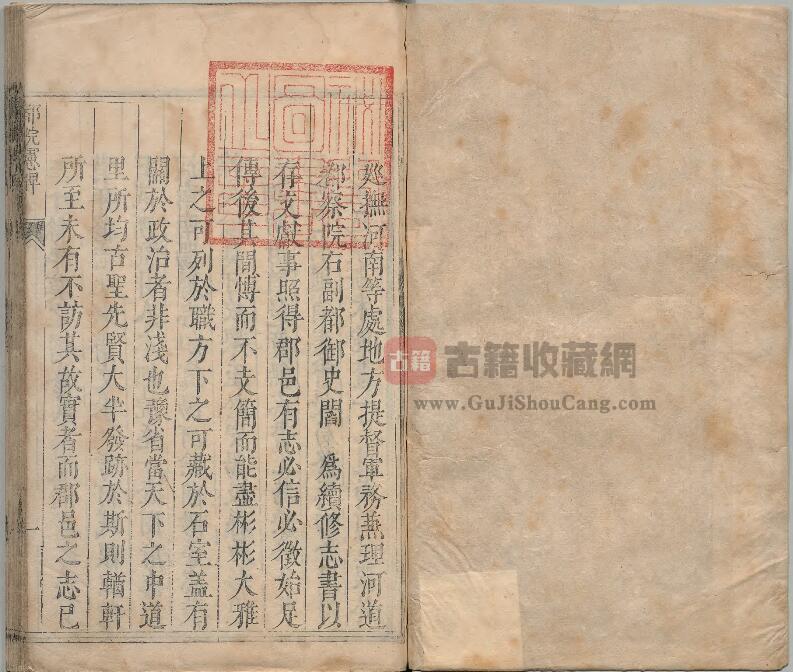 廵撫河南等處地方提督軍務兼理河道
都察院右副都御史閻 為續修志書以
存文獻事照得郡邑有志必信必徵始足
傳後其間慱而不支簡而能盡彬彬大雅
上之可列於職方下之可藏於石室蓋有
關於政治者非淺也豫省當天下之中道
里所均古聖先賢大半發跡於斯則輶軒
所至未有不訪其故實者而郡邑之志已
都院憲牌
一
古籍
古籍收藏網
www.GuJiShouCang.com